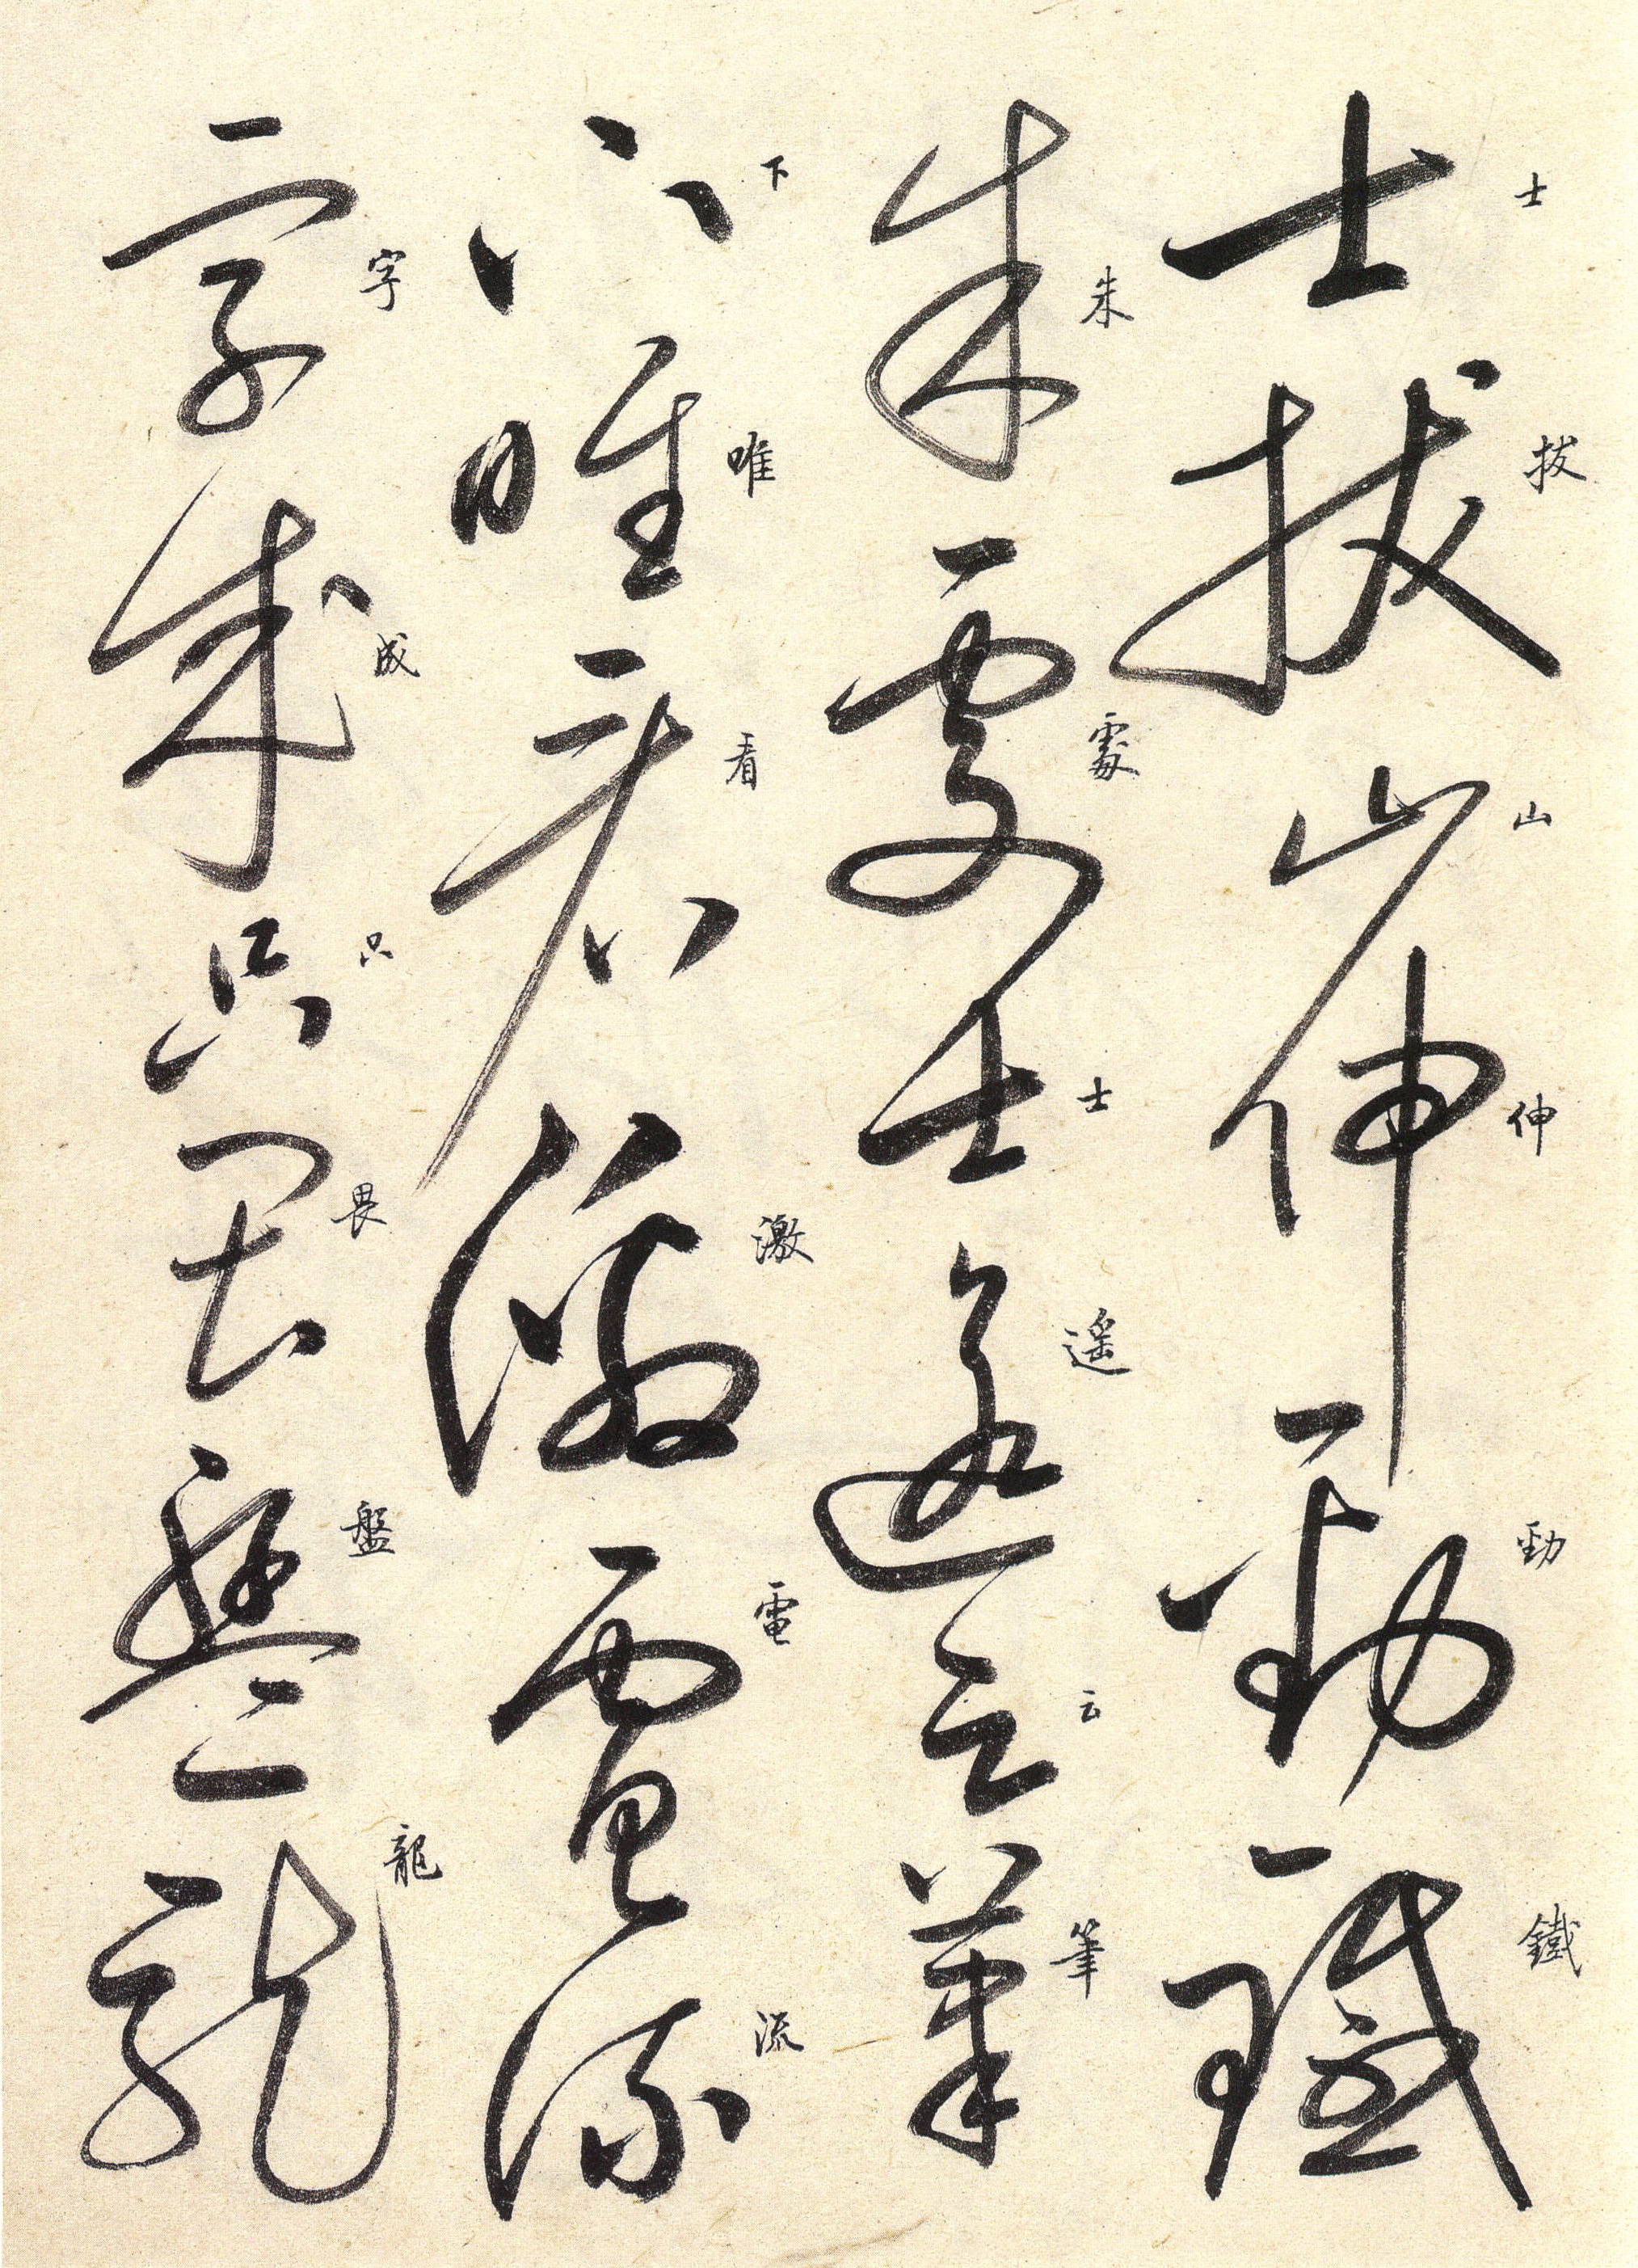 士拔山伸勁鐵
朱處士遥云筆
下唯看激電流
字成只畏盤龍